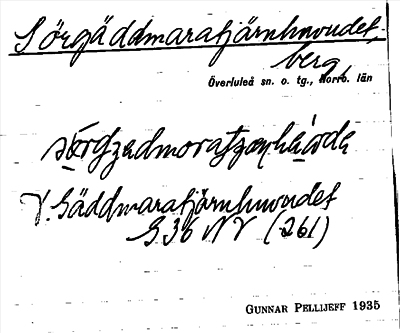 Sörgäddmaratjärnhuvudet,
berg
Överluleå sn. o. tg., Norrb. län
V. Gäddmaratjärnhuvudet
S 36 NV (261)
GUNNAR PELLIJEFF 1935